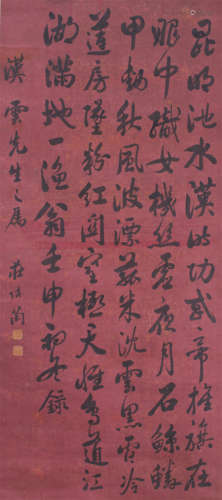 昆明池水漢時功武帝旌旗在
眼中織女機絲虛夜月石鯨鱗
甲動秋風波漂菰米沈雲黑露冷
蓮房墜粉紅關塞極天惟鳥道江
湖滿地一漁翁壬申初冬錄
漢雲先生之屬 莊